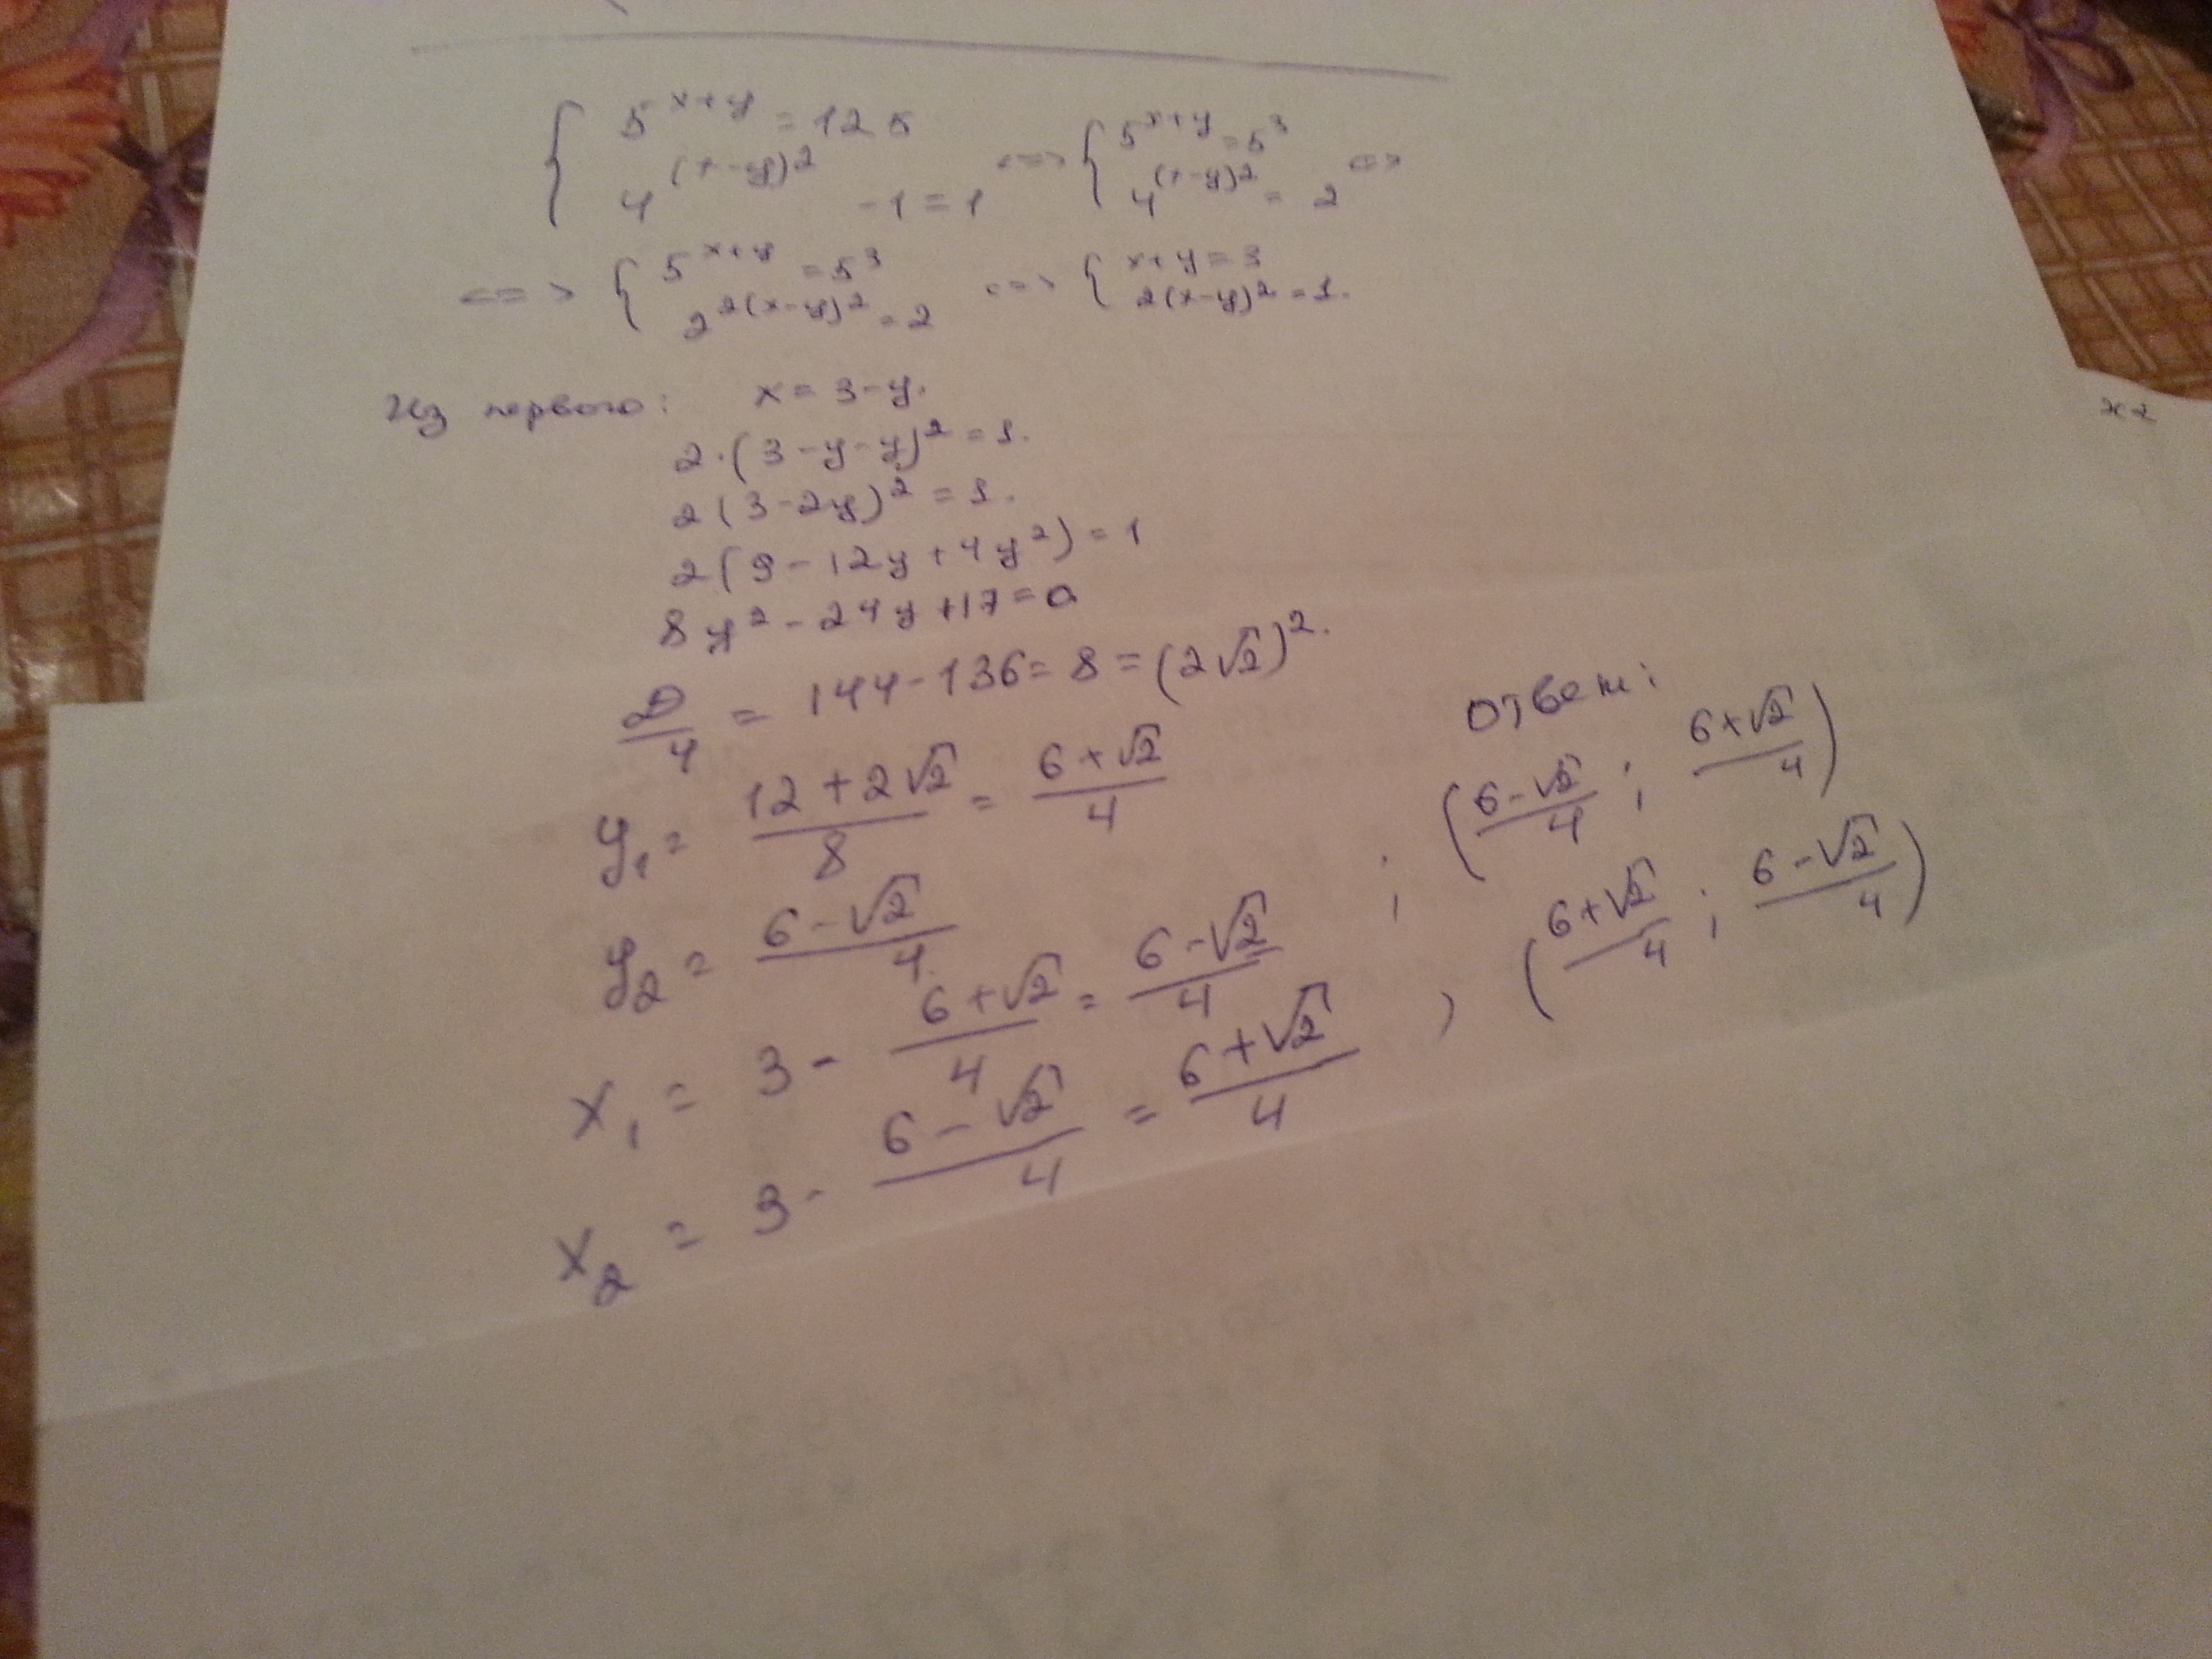 { 5^{x+y} = 125
4^{(x-y)^2} - 1 = 1 <=> { 5^{x+y} = 5^3
4^{(x-y)^2} = 2 <=>
<=> { 5^{x+y} = 5^3
2^{2(x-y)^2} = 2 <=> { x+y = 3
2(x-y)^2 = 1.
Из первого: x = 3-y.
2·(3-y-y)^2 = 1.
2(3-2y)^2 = 1.
2(9-12y+4y^2) = 1
8y^2-24y+17=0
D/4 = 144-136 = 8 = (2√2)^2.
y_1 = (12+2√2)/8 = (6+√2)/4
y_2 = (6-√2)/4.
x_1 = 3 - (6+√2)/4 = (6-√2)/4 ;
x_2 = 3 - (6-√2)/4 = (6+√2)/4 ,
Ответ:
((6-√2)/4 ; (6+√2)/4)
((6+√2)/4 ; (6-√2)/4)